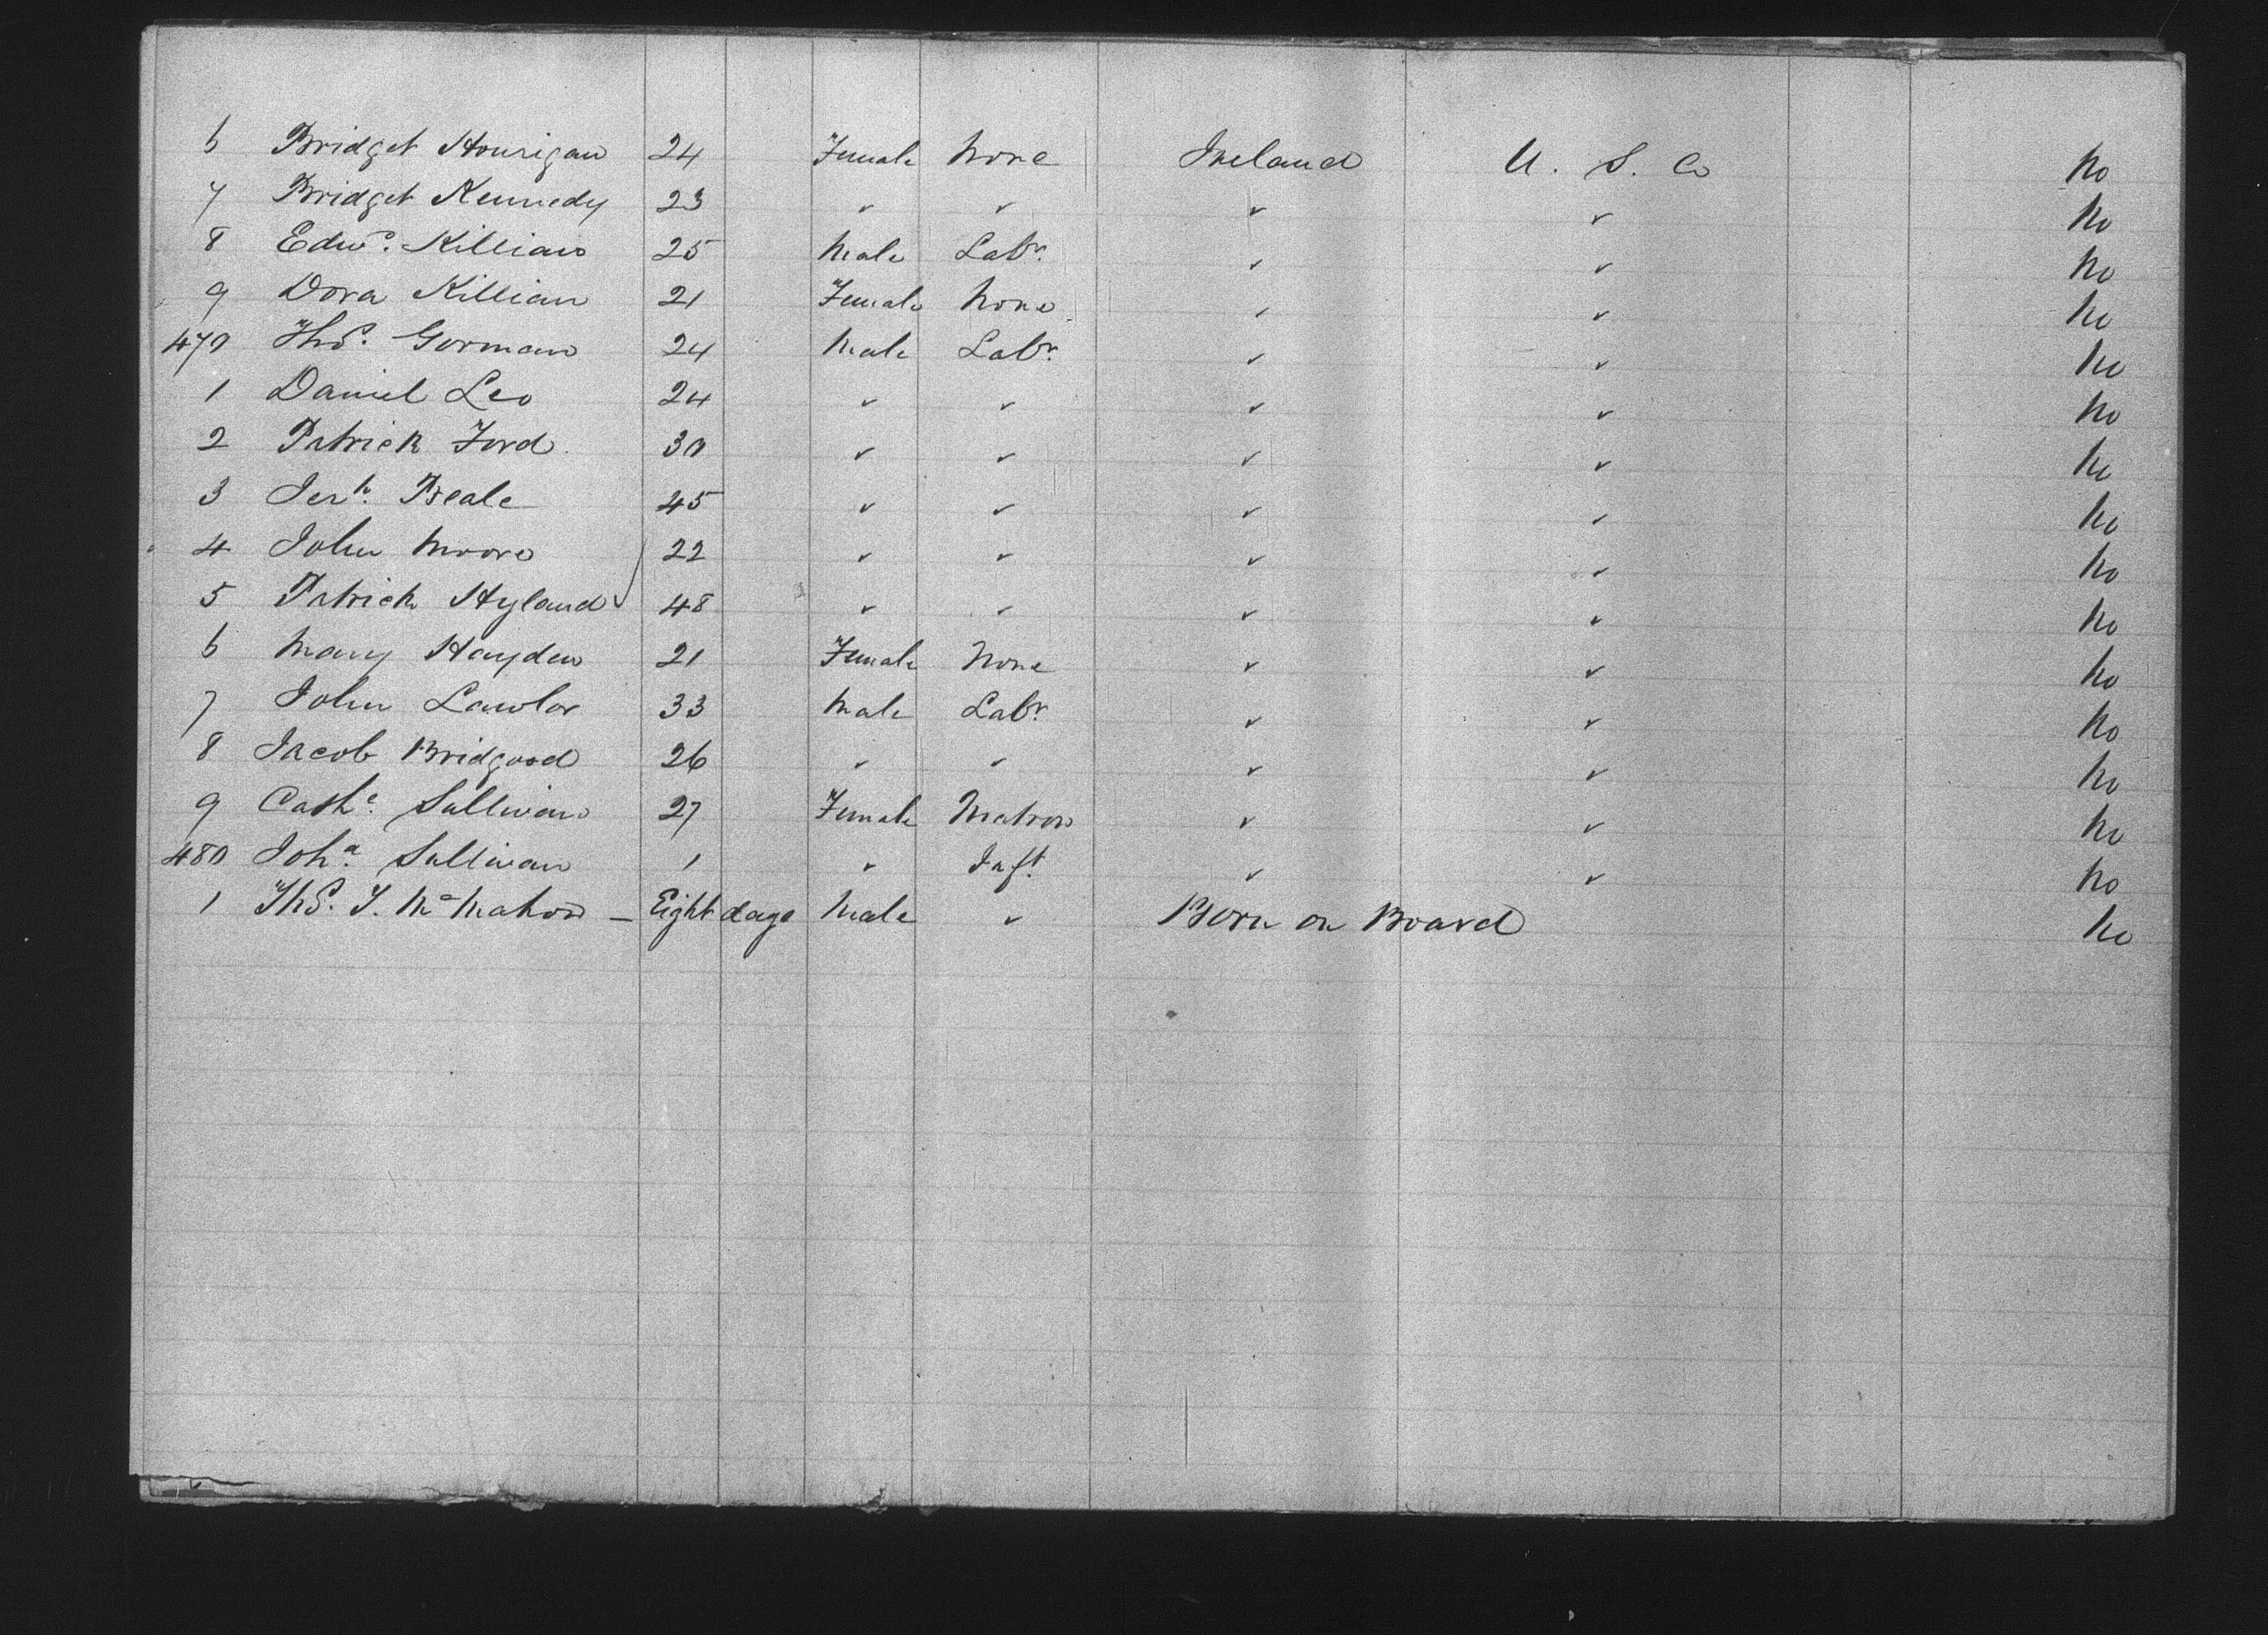 6 Bridget Hourigan 24 Female None Ireland U. S. Co No
7 Bridget Kennedy 23 " " " " No
8 Edwd. Killian 25 Male Labr. " " No
9 Dora Killian 21 Female None " " No
470 Thos. Gorman 24 Male Labr. " " No
1 Daniel Leo 24 " " " " No
2 Patrick Ford 30 " " " " No
3 Jerh. Beale 45 " " " " No
4 John Moore 22 " " " " No
5 Patrick Hyland 48 " " " " No
6 Mary Hayden 21 Female None " " No
7 John Lawlor 33 Male Labr. " " No
8 Jacob Bridgood 26 " " " " No
9 Cathe. Sullivan 27 Female Matron " " No
480 Joha. Sullivan 1 " Inft. " " No
1 Thos. J. McMahon — Eight days Male " Born on Board No